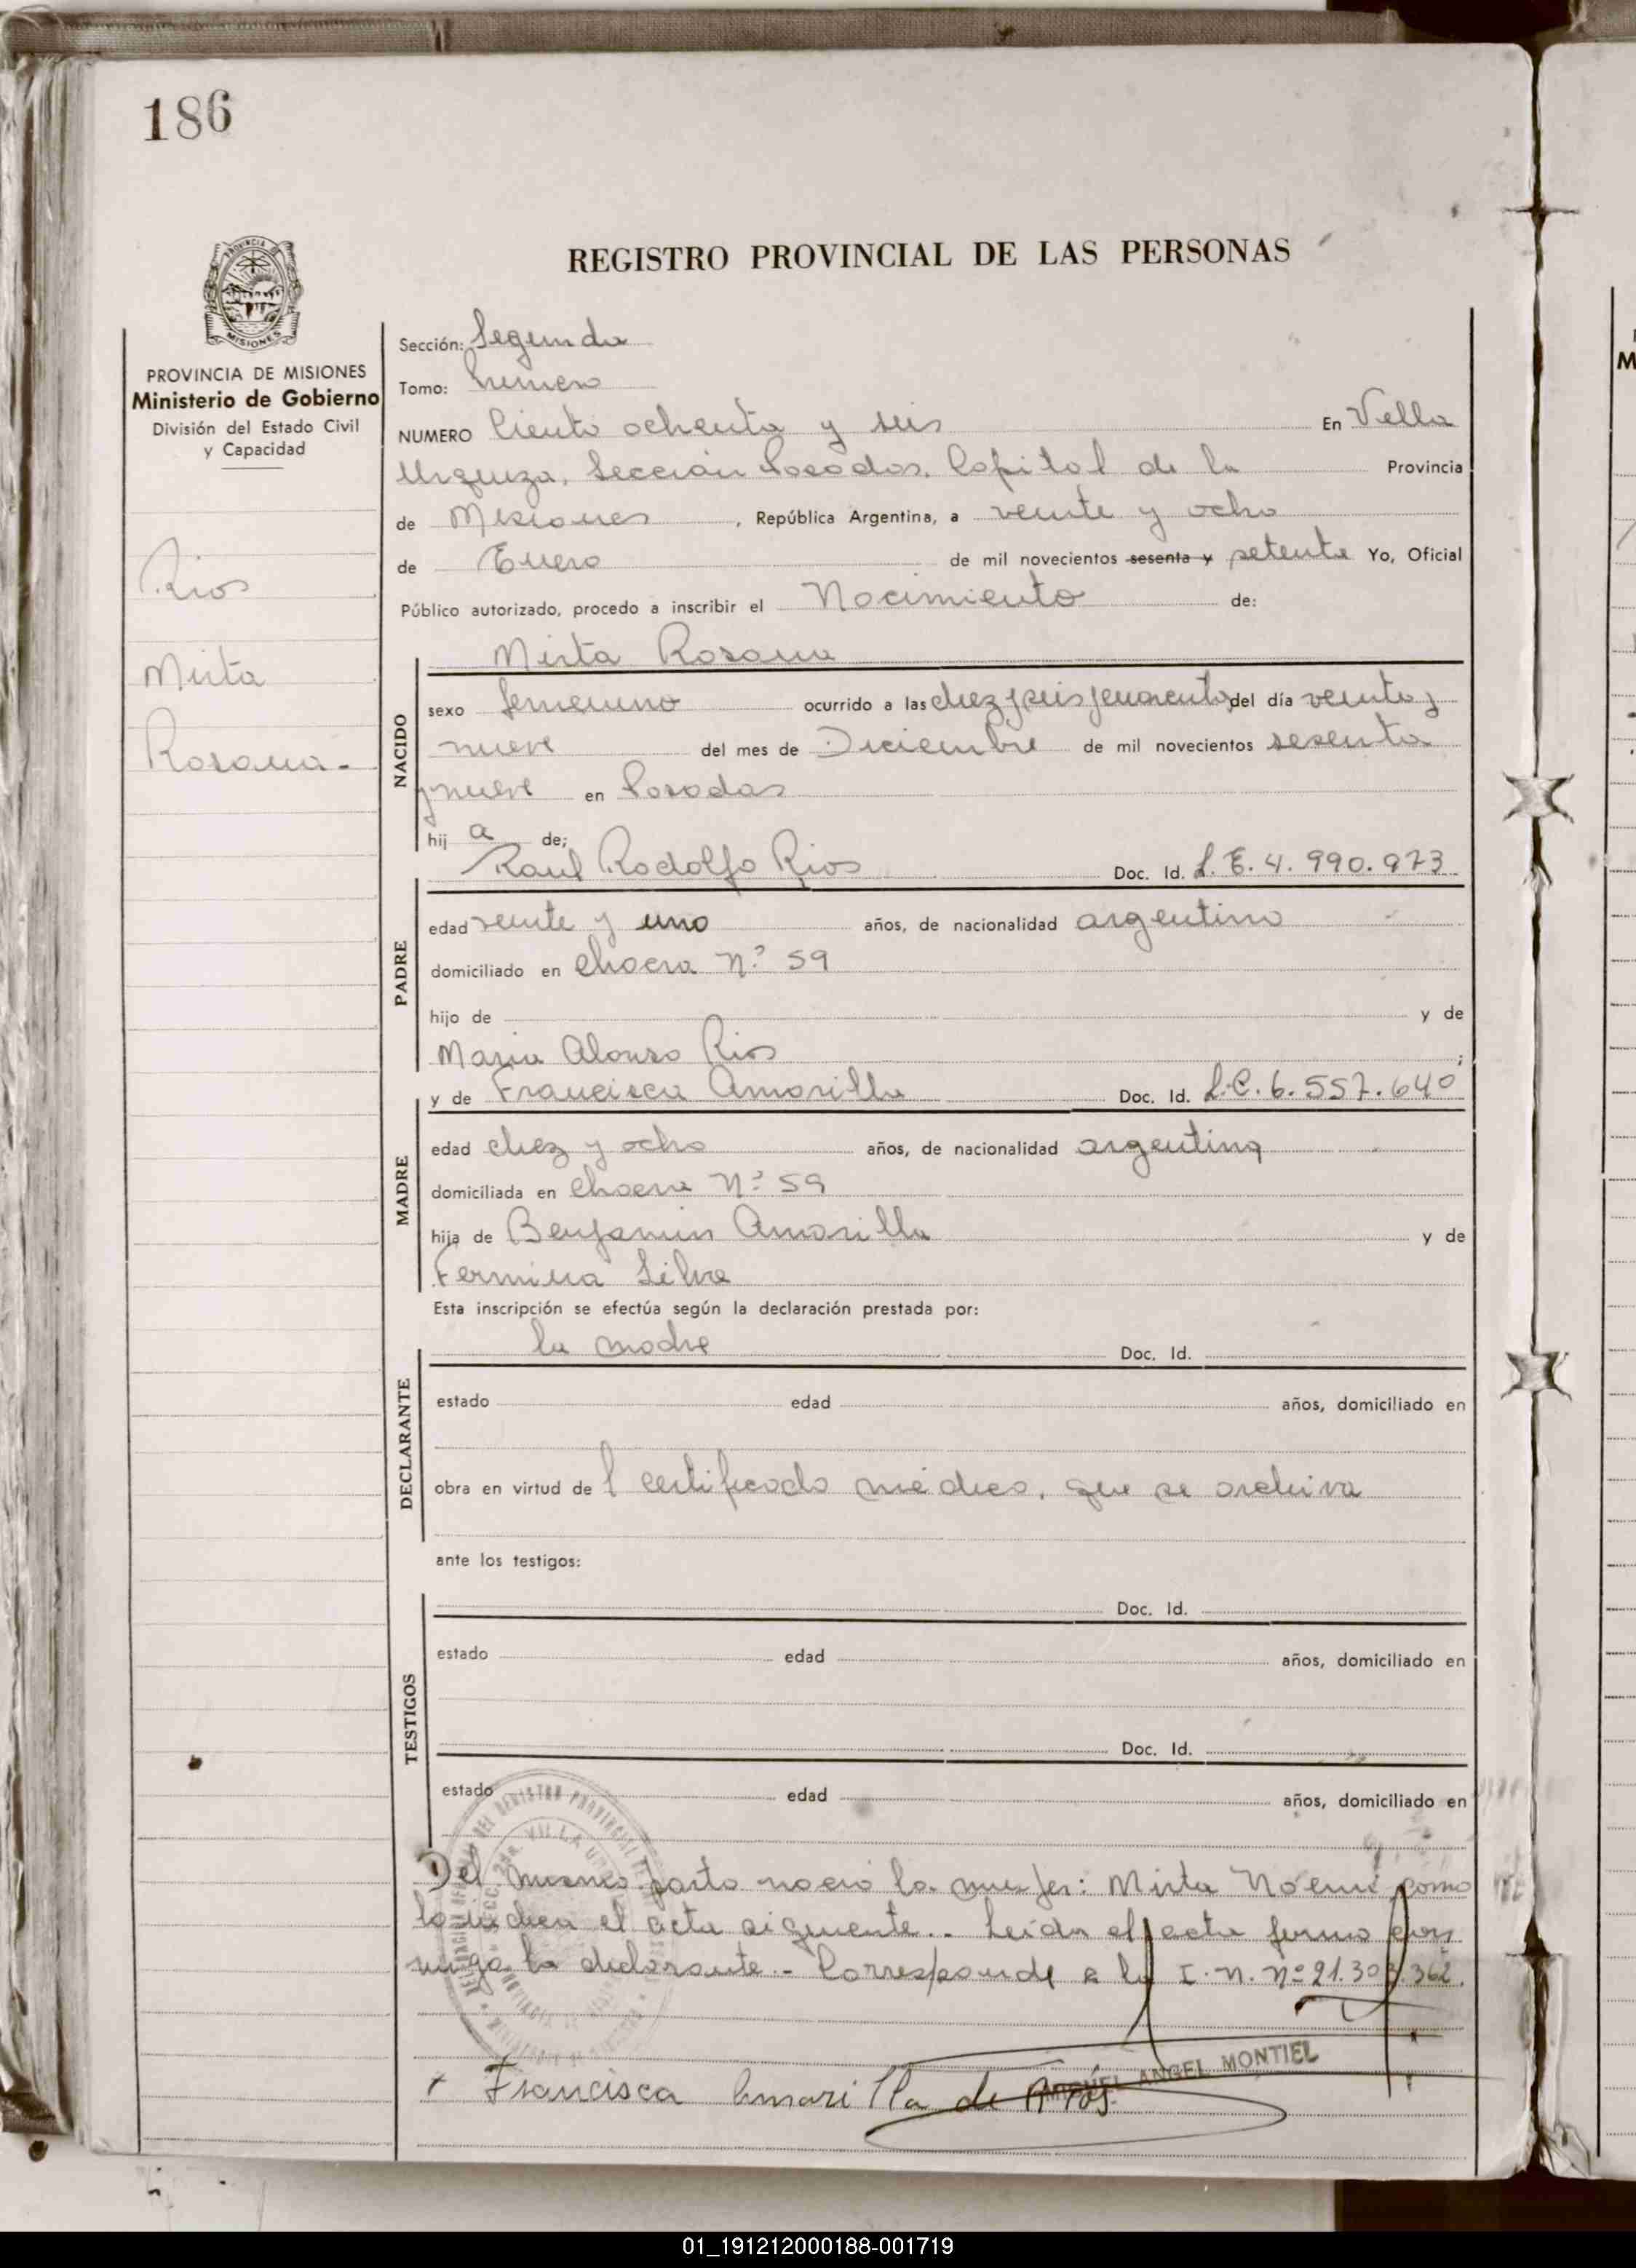 186
REGISTRO PROVINCIAL DE LAS PERSONAS
PROVINCIA DE MISIONES
Ministerio de Gobierno
División del Estado Civil
y Capacidad
Rios
Mirta
Rosana-
Sección: Segunda
Tomo: Primero
NUMERO Ciento ochenta y seis En Villa
Urquiza, Sección Posadas, Capital de la Provincia
de Misiones, República Argentina, a veinte y ocho
de Enero de mil novecientos sesenta y setenta Yo, Oficial
Público autorizado, procedo a inscribir el Nacimiento de:
Mirta Rosana
NACIDO
sexo femenino ocurrido a las diez y seis y cuarenta del día veinte y
nueve del mes de Diciembre de mil novecientos sesenta
y nueve en Posadas
hij a de;
Raul Rodolfo Rios Doc. Id. L.E. 4.990.973
PADRE
edad veinte y uno años, de nacionalidad argentino
domiciliado en Chacra Nº 59
hijo de y de
Maria Alonso Rios ;
y de Francisca Amarilla Doc. Id. L.C. 6.557.640
MADRE
edad diez y ocho años, de nacionalidad argentina
domiciliada en Chacra Nº 59
hija de Benjamin Amarilla y de
Fermina Silva
Esta inscripción se efectúa según la declaración prestada por:
la madre Doc. Id.
DECLARANTE
estado edad años, domiciliado en
obra en virtud de l certificado médico, que se archiva
ante los testigos:
Doc. Id.
TESTIGOS
estado edad años, domiciliado en
Doc. Id.
estado edad años, domiciliado en
Del mismo parto nació la mujer: Mirta Noemí como
lo indica el acta siguiente.. Leída el acta firma con
migo la declarante.- Corresponde a la I.N. Nº 21.303.362.
Francisca Amarilla de Rios
MIGUEL ANGEL MONTIEL
01_191212000188-001719